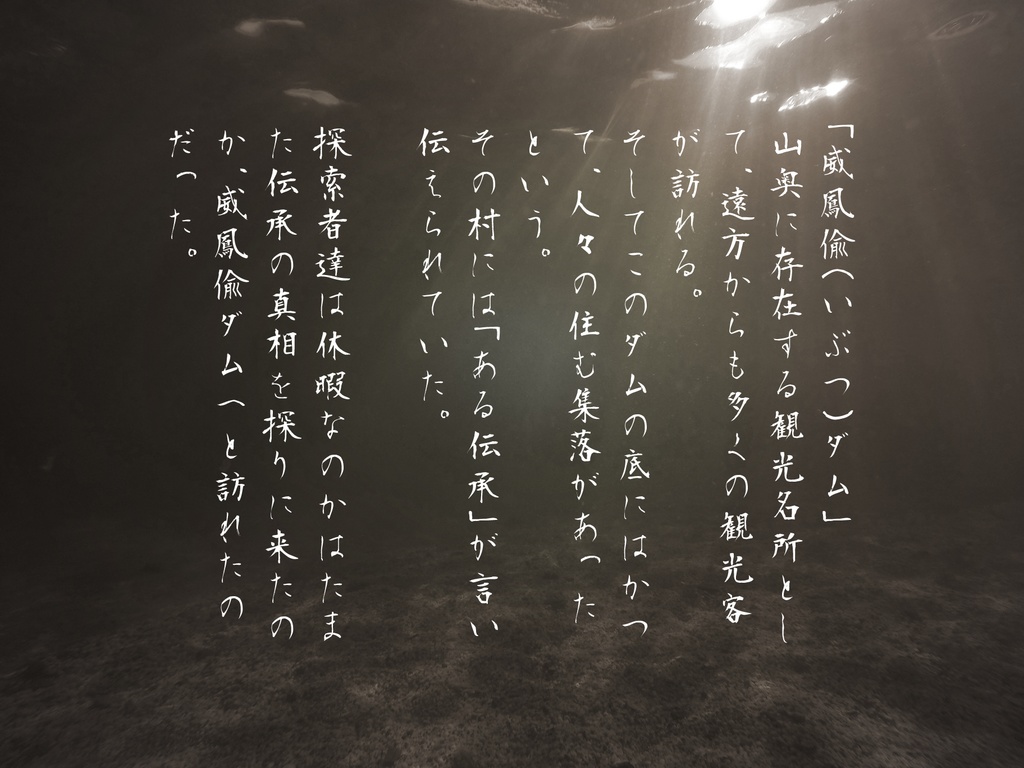 「威鳳偸(いぶつ)ダム」
山奥に存在する観光名所とし
て、遠方からも多くの観光客
が訪れる。
そしてこのダムの底にはかつ
て、人々の住む集落があった
という。
その村には「ある伝承」が言い
伝えられていた。
探索者達は休暇なのかはたま
た伝承の真相を探りに来たの
か、威鳳偸ダムへと訪れたの
だった。